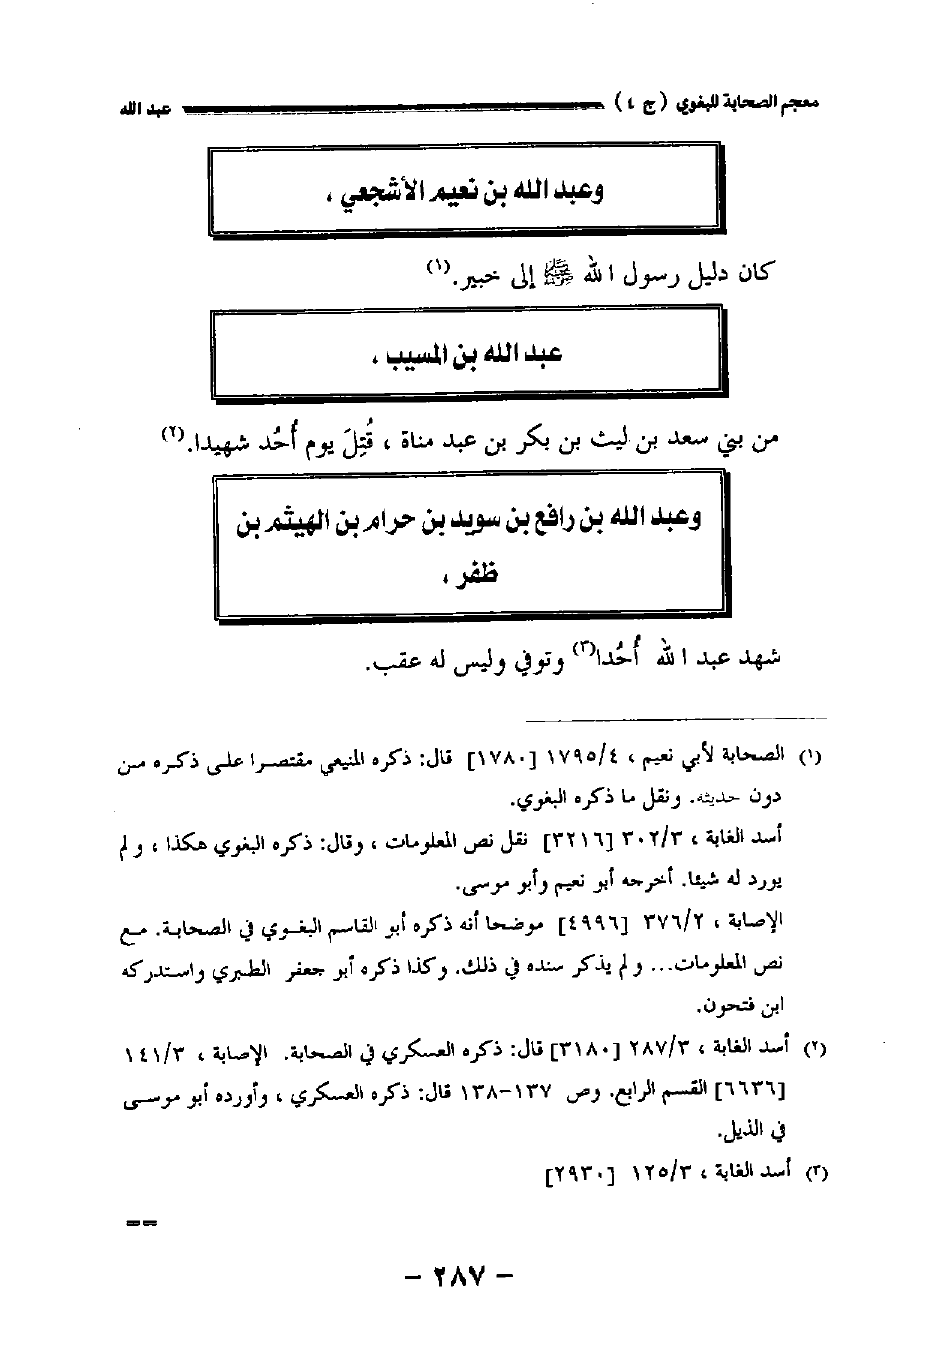 معجم الصحابة للبغوي (ج ٤) عبد الله
وعبد الله بن نعيم الأشجعي ،
كان دليل رسول الله ﷺ إلى خيبر.(١)
عبد الله بن المسيب ،
من بني سعد بن ليث بن بكر بن عبد مناة ، قُتِلَ يوم أُحُد شهيدا.(٢)
وعبد الله بن رافع بن سويد بن حرام بن الهيثم بن
ظفر ،
شهد عبد الله أُحُدا(٣) وتوفي وليس له عقب.
(١) الصحابة لأبي نعيم ، ١٧٩٥/٤ [١٧٨٠] قال: ذكره المنيعي مقتصرا على ذكره من
دون حديثه. ونقل ما ذكره البغوي.
أسد الغابة ، ٣٠٢/٣ [٣٢١٦] نقل نص المعلومات ، وقال: ذكره البغوي هكذا ، و لم
يورد له شيئا. أخرجه أبو نعيم وأبو موسى.
الإصابة ، ٣٧٦/٢ [٤٩٩٦] موضحا أنه ذكره أبو القاسم البغوي في الصحابة. مع
نص المعلومات... و لم يذكر سنده في ذلك. وكذا ذكره أبو جعفر الطبري واستدركه
ابن فتحون.
(٢) أسد الغابة ، ٢٨٧/٣ [٣١٨٠] قال: ذكره العسكري في الصحابة. الإصابة ، ١٤١/٣
[٦٦٣٦] القسم الرابع. وص ١٣٧-١٣٨ قال: ذكره العسكري ، وأورده أبو موسى
في الذيل.
(٣) أسد الغابة ، ١٢٥/٣ [٢٩٣٠]
==
- ٢٨٧ -